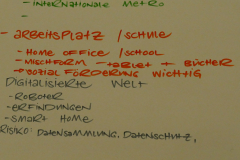 - INTERNATIONALE METRO
-
- ARBEITSPLATZ / SCHULE
- HOME OFFICE / SCHOOL
- MISCHFORM - TABLET + BÜCHER
SOZIAL FÖRDERUNG WICHTIG
DIGITALISIERTE WELT
- ROBOTER
- ERFINDUNGEN
- SMART HOME
RISIKO: DATENSAMMLUNG, DATENSCHUTZ,